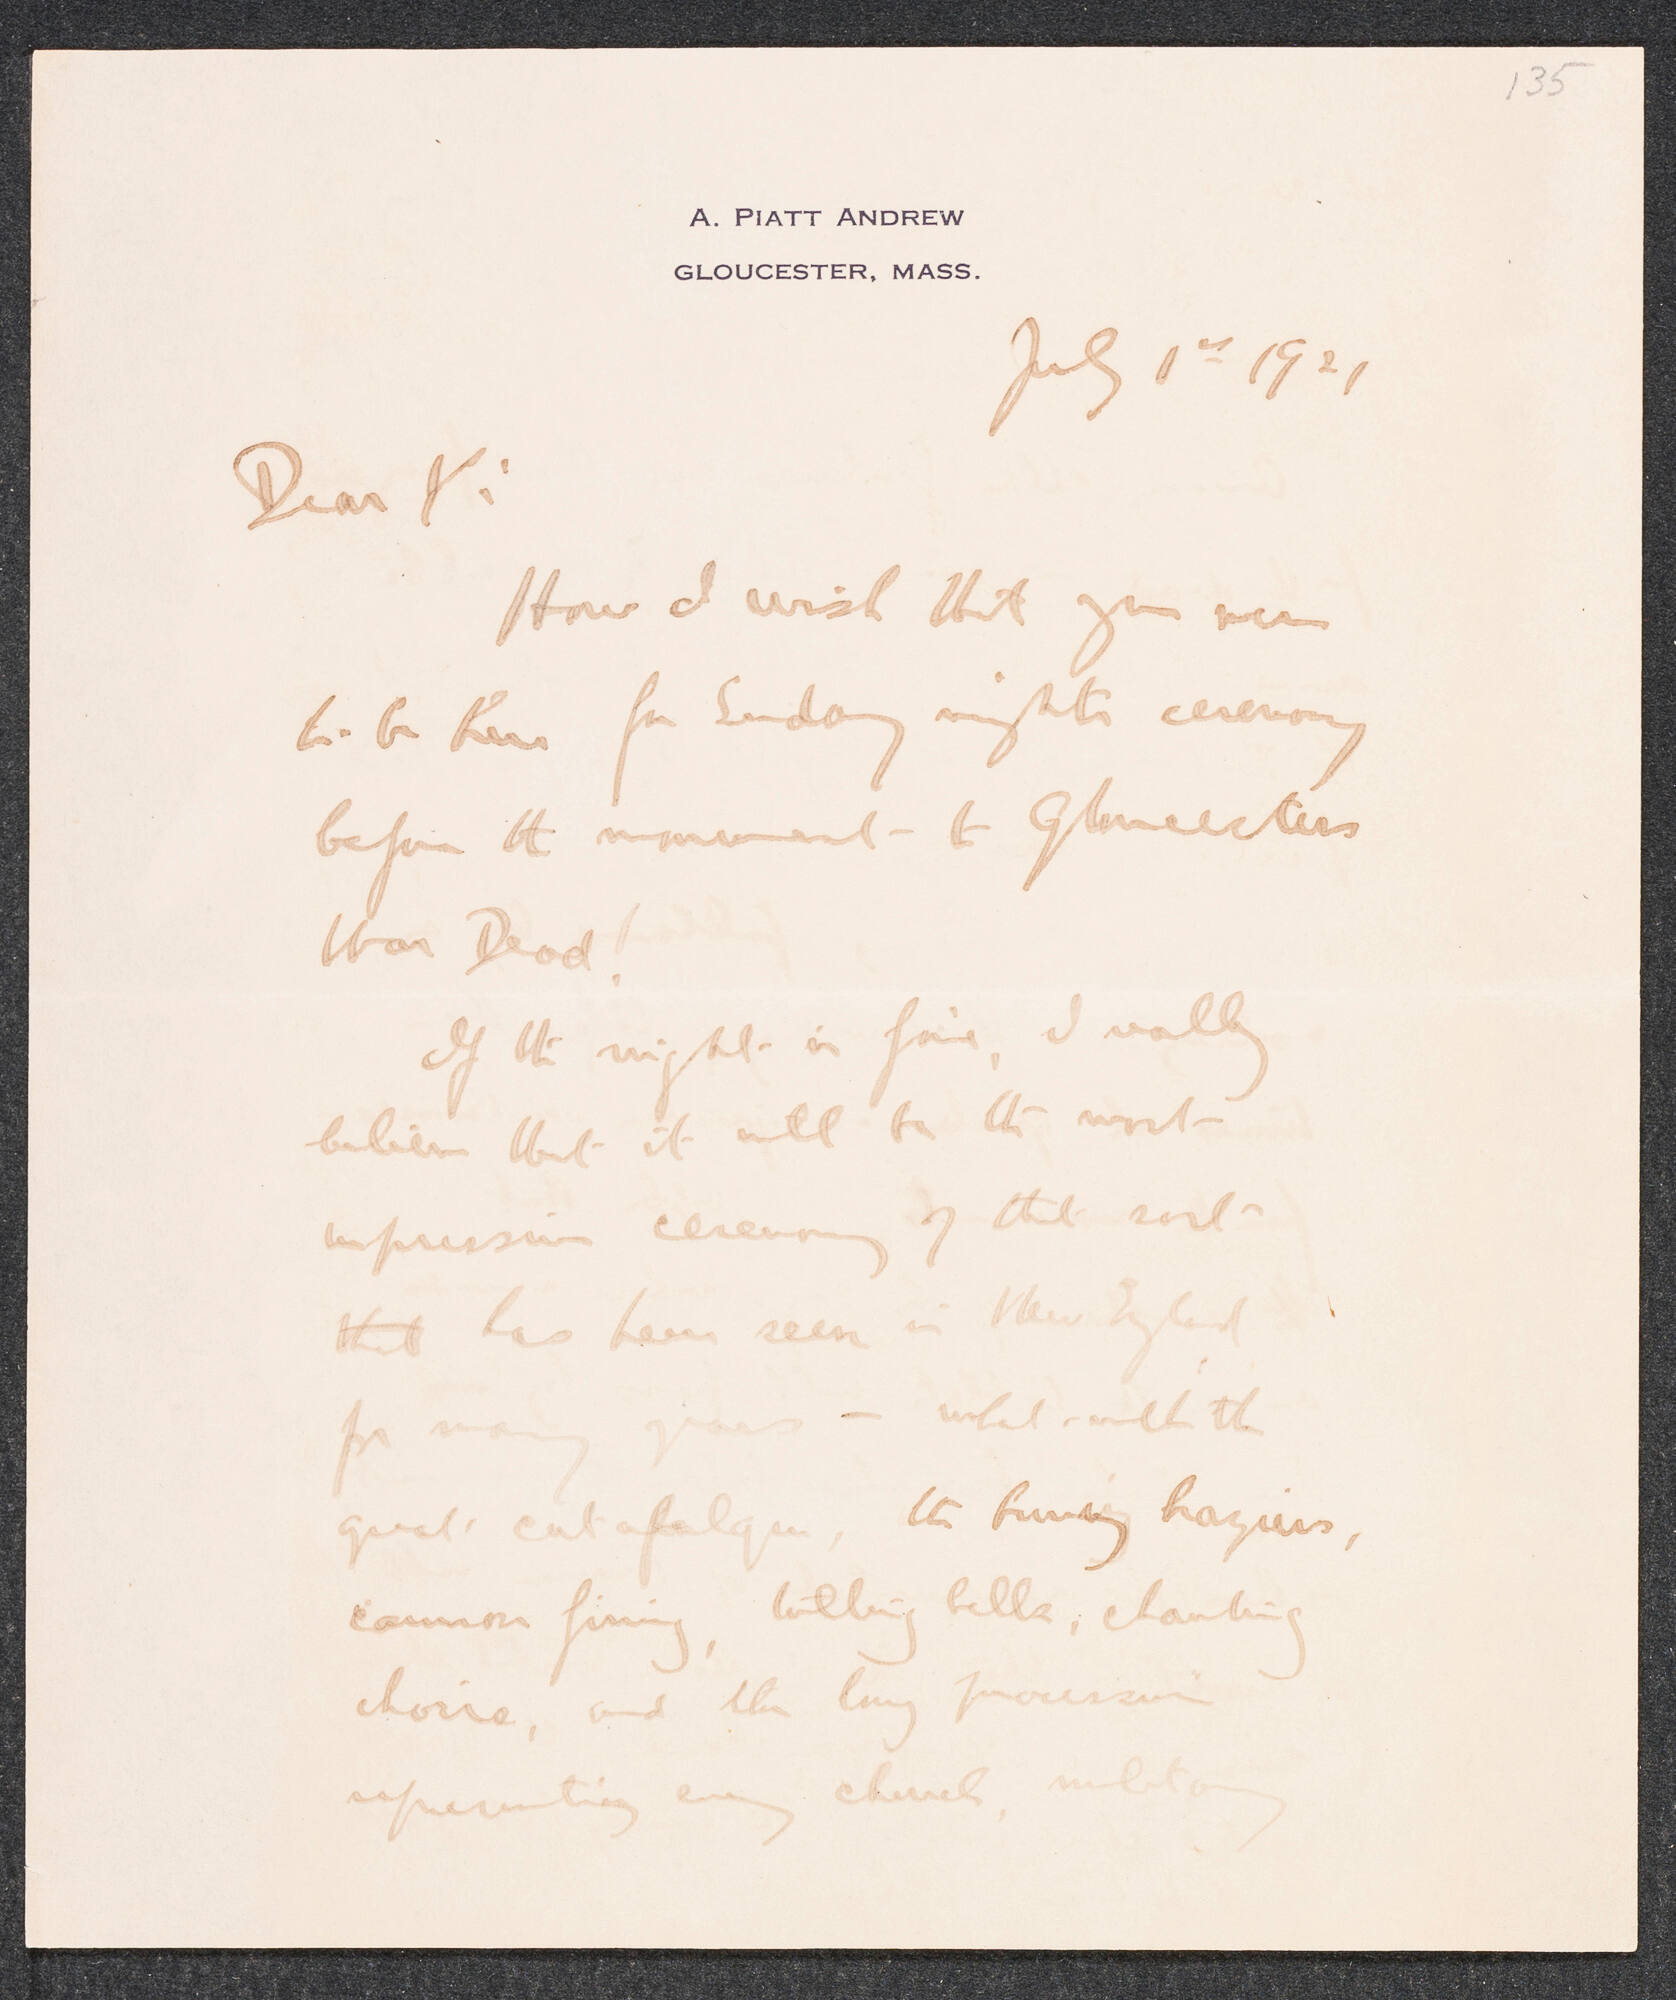 135
A. PIATT ANDREW
GLOUCESTER, MASS.
July 1st 1921
Dear Y:
How I wish that you were
to be here for Sunday nights ceremony
before the monument to Gloucesters
War Dead!
If the night is fair, I really
believe that it will be the most
impressive ceremony of that sort
that has been seen in New England
for many years – what with the
great catafalque, the burning braziers,
cannon firing, tolling bells, chanting
choirs, and the long procession
representing every church, military